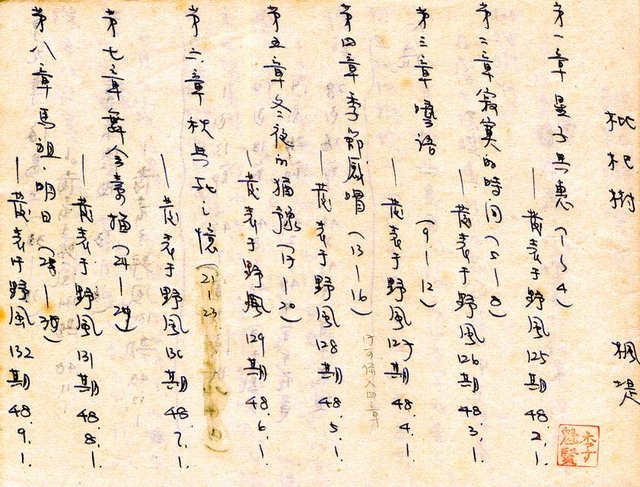 枇杷樹 楓堤
第一章 星子與惠 (1—4)
—發表于野風125期 48.2.1.
第二章 寂寞的時間 (5—8)
—發表于野風126期 48.3.1.
第三章 囈語 (9—12)
—發表于野風127期 48.4.1.
第四章 季節感喟 (13—16)
—發表于野風128期 48.5.1.
第五章 冬夜的猶豫 (17—20)
—發表于野風129期 48.6.1.
第六章 秋與死之憶 (21—23)
—發表于野風130期 48.7.1.
第七章 舞會素描 (24—28)
—發表于野風131期 48.8.1.
第八章 馬祖.明日
—發表于野風132期 48.9.1.
李魁賢